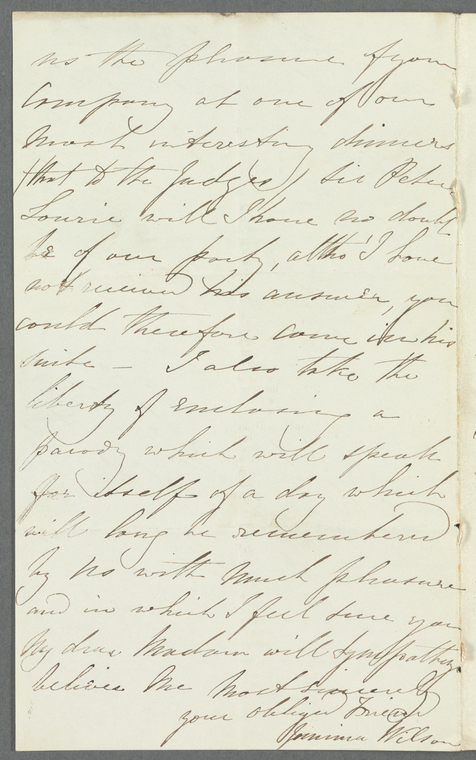 us the pleasure of your
Company at one of our
most interesting dinners
(that to the Judges) Sir Peter
Laurie will I have no doubt
be of our party, altho' I have
not received his answer, you
could therefore come in his
suite – I also take the
liberty of enclosing a
parody which will speak
for itself of a day which
will long be remembered
by us with much pleasure
and in which I feel sure you
My dear Madam will sympathize
believe me most sincerely
your obliged Friend
Jemima Wilson